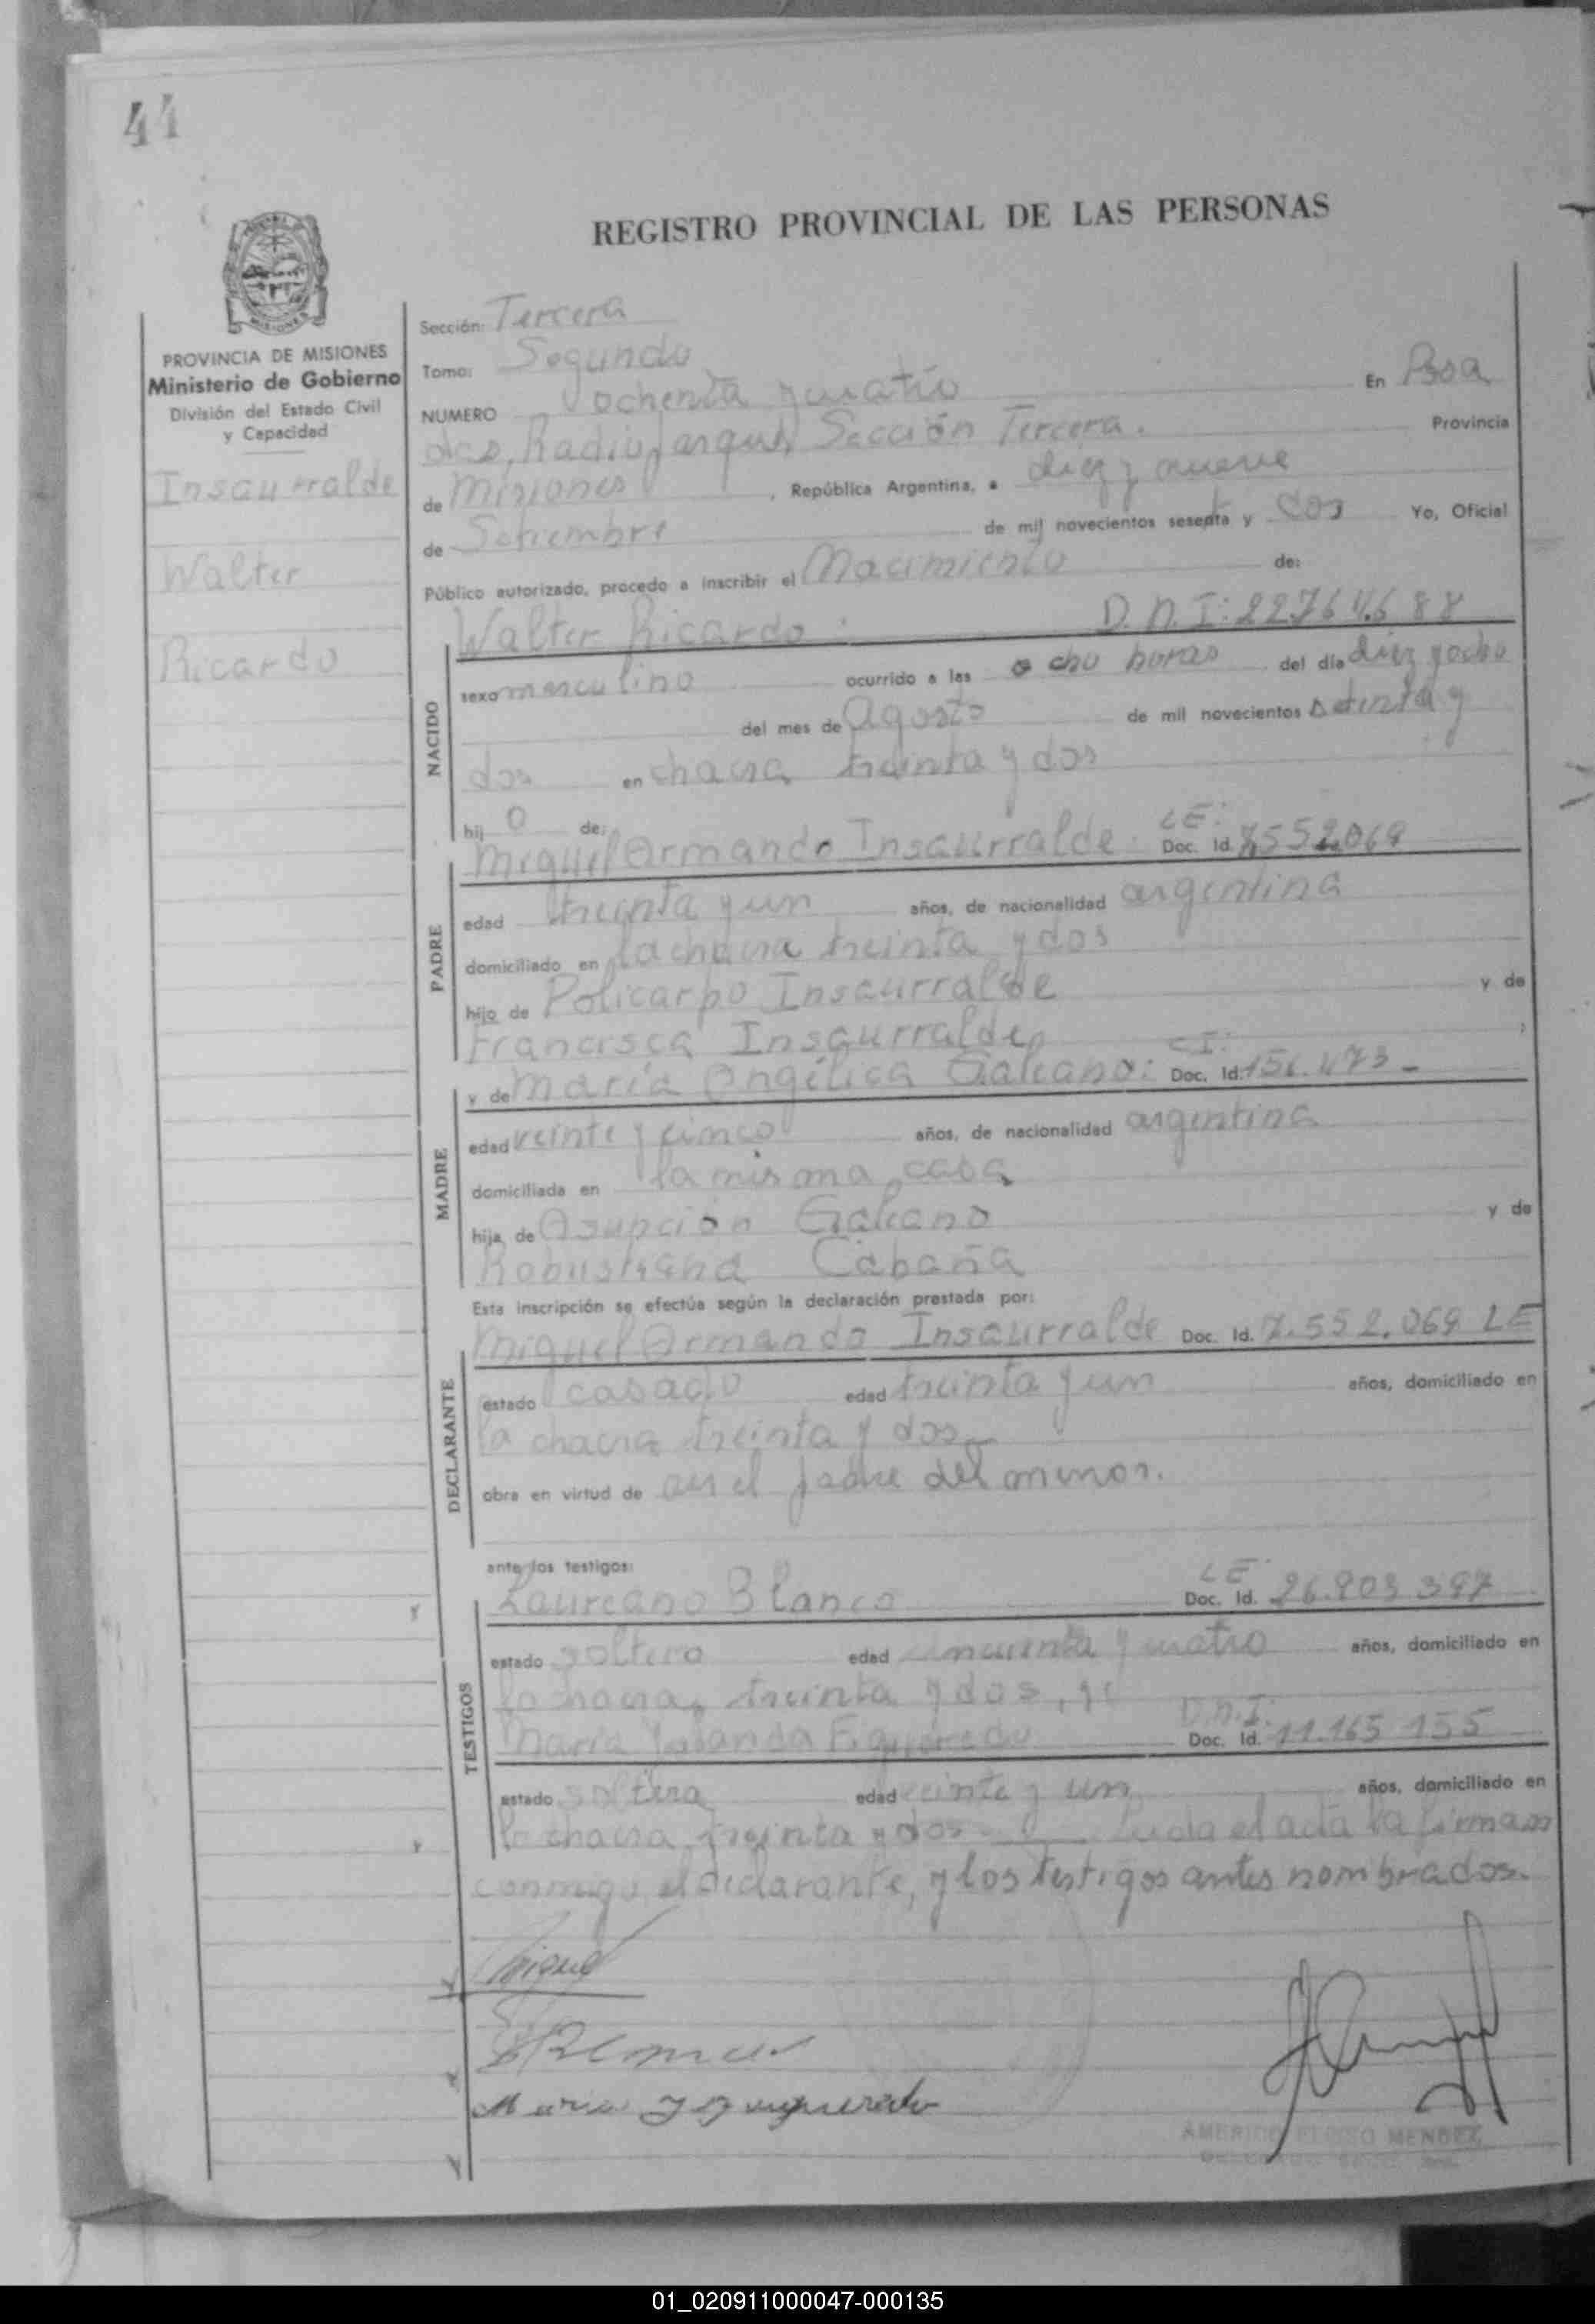 44
REGISTRO PROVINCIAL DE LAS PERSONAS
MISIONES
PROVINCIA DE MISIONES
Ministerio de Gobierno
División del Estado Civil
y Capacidad
Insaurralde
Walter
Ricardo
Sección: Tercera
Tomo: Segundo
NUMERO ochenta y cuatro En Posa
das, Sección Tercera. Provincia
de Misiones, República Argentina, a diez y nueve
de Setiembre de mil novecientos sesenta y dos Yo, Oficial
Público autorizado, procedo a inscribir el Nacimiento de:
Walter Ricardo D.N.I: 22.764.688
NACIDO
sexo masculino ocurrido a las ocho horas del día diez y ocho
del mes de Agosto de mil novecientos setenta y
dos en chacra treinta y dos
hijo de:
Miguel Armando Insaurralde LE: Doc. Id. 7.552.069
PADRE
edad treinta y un años, de nacionalidad argentina
domiciliado en la chacra treinta y dos
hijo de Policarpo Insaurralde y de
Francisca Insaurralde
y de María Angélica Galeano: CI: Doc. Id. 156.473
MADRE
edad veinte y cinco años, de nacionalidad argentina
domiciliada en la misma casa
hija de Asunción Galeano y de
Robustiana Cabaña
Esta inscripción se efectúa según la declaración prestada por:
Miguel Armando Insaurralde Doc. Id. 7.552.069 LE
DECLARANTE
estado casado edad treinta y un años, domiciliado en
la chacra treinta y dos
obra en virtud de ser el padre del menor.
ante los testigos:
Laureano Blanco LE Doc. Id. 26.903.397
TESTIGOS
estado soltero edad cincuenta y cuatro años, domiciliado en
la chacra treinta y dos,
María Yolanda Figueredo D.N.I: Doc. Id. 11.165.155
estado soltera edad veinte y un años, domiciliado en
la chacra treinta y dos. Leida el acta la firman
conmigo el declarante, y los testigos antes nombrados.
Miguel
Blanco
Maria Y Figueredo
AMERICO MENDEZ
01_020911000047-000135